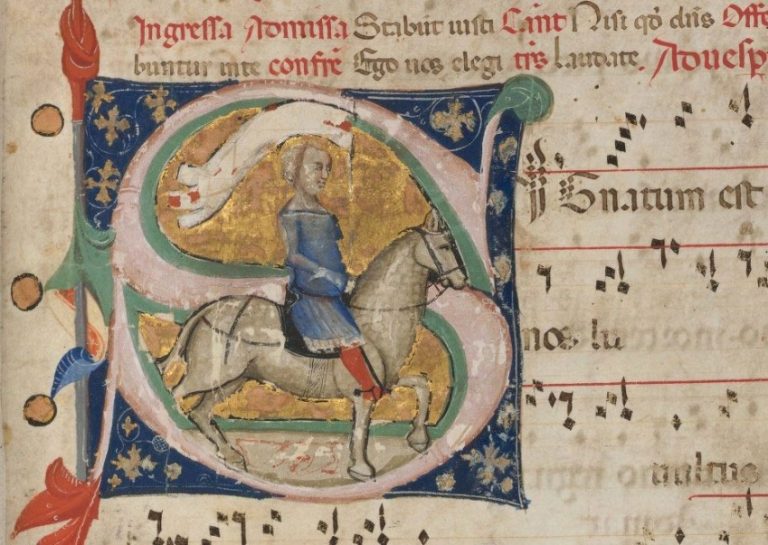 Ingressa Admissa Stabunt iusti Cant Nisi qd dns Offe
buntur inte confre Ego uos elegi trs laudate. Aduesp
S
Gnatum est
nos lu
multus